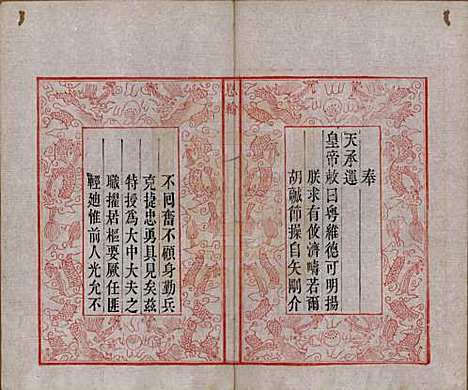 奉
天承運
皇帝敕曰粵維德可明揚
朕求有攸濟疇若爾
胡 節操自矢剛介
恩綸
不回奮不顧身勤兵
克捷忠勇具見矣茲
特授為大中大夫之
職擢居樞要厥任匪
輕廸惟前人光允不